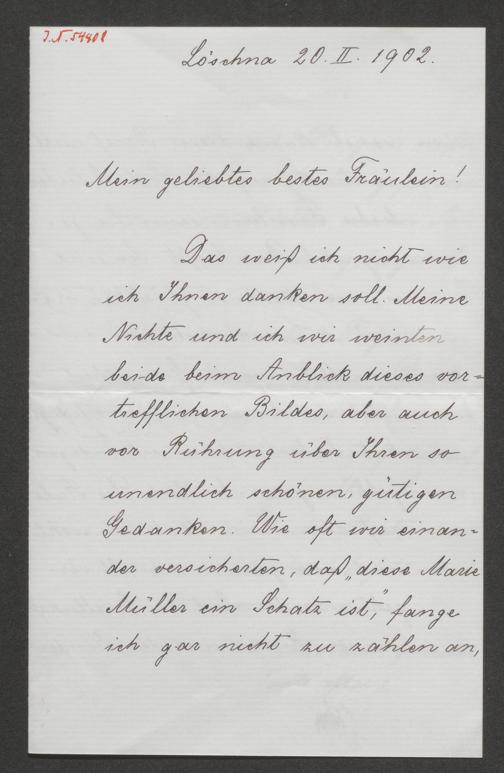 J.N. 54401
Löschna 20. II. 1902.
Mein geliebtes bestes Fräulein!
Das weiß ich nicht wie
ich Ihnen danken soll. Meine
Nichte und ich wir weinten
beide beim Anblick dieses vor=
trefflichen Bildes, aber auch
vor Rührung über Ihren so
unendlich schönen, gütigen
Gedanken. Wie oft wir einan=
der versicherten, daß „diese Marie
Müller ein Schatz ist,” fange
ich gar nicht zu zählen an,